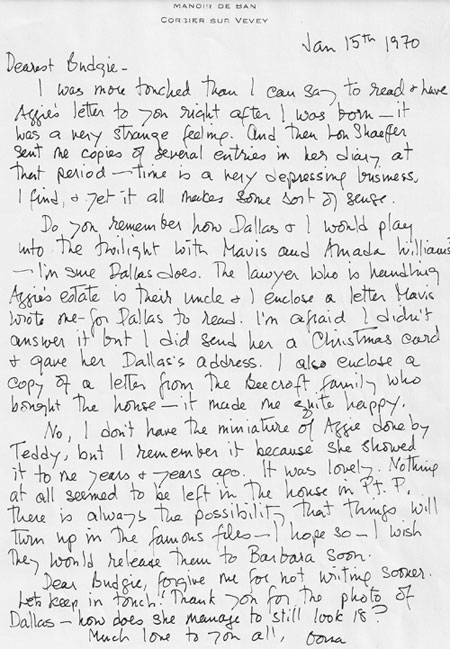 MANOIR DE BAN
CORSIER SUR VEVEY
Jan 15th 1970
Dearest Budgie -
I was more touched than I can say to read & have
Aggie's letter to you right after I was born — it
was a very strange feeling. And then Lou Shaefer
sent me copies of several entries in her diary at
that period — time is a very depressing business,
I find, & yet it all makes some sort of sense.
Do you remember how Dallas & I would play
into the twilight with Mavis and Amada Williams
— I'm sure Dallas does. The lawyer who is handling
Aggie's estate is their uncle & I enclose a letter Mavis
wrote me - for Dallas to read. I'm afraid I didn't
answer it but I did send her a Christmas card
& gave her Dallas's address. I also enclose a
copy of a letter from the Beecroft family who
bought the house — it made me quite happy.
No, I don't have the miniature of Aggie done by
Teddy, but I remember it because she showed
it to me years & years ago. It was lovely. Nothing
at all seemed to be left in the house in P.t. P.
There is always the possibility that things will
turn up in the famous files — I hope so — I wish
they would release them to Barbara soon.
Dear Budgie, forgive me for not writing sooner.
Let's keep in touch! Thank you for the photo of
Dallas — how does she manage to still look 18?
Much love to you all, Oona